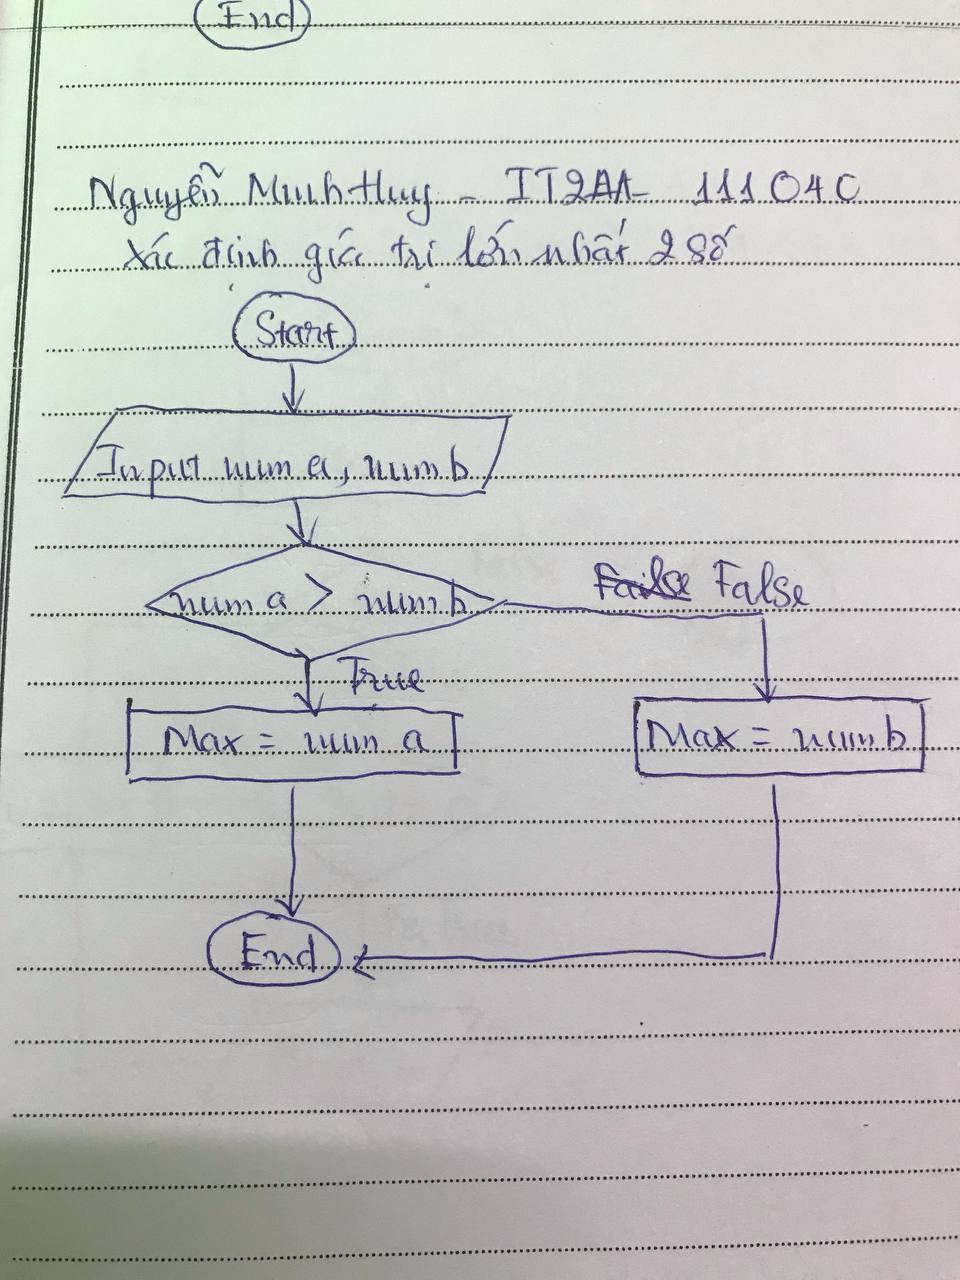 End
Nguyễn Minh Huy - IT2AA- 111040
Xác định giá trị lớn nhất 2 số
Start
Input num a, num b
num a > num b
False
True
Max = num a
Max = num b
End